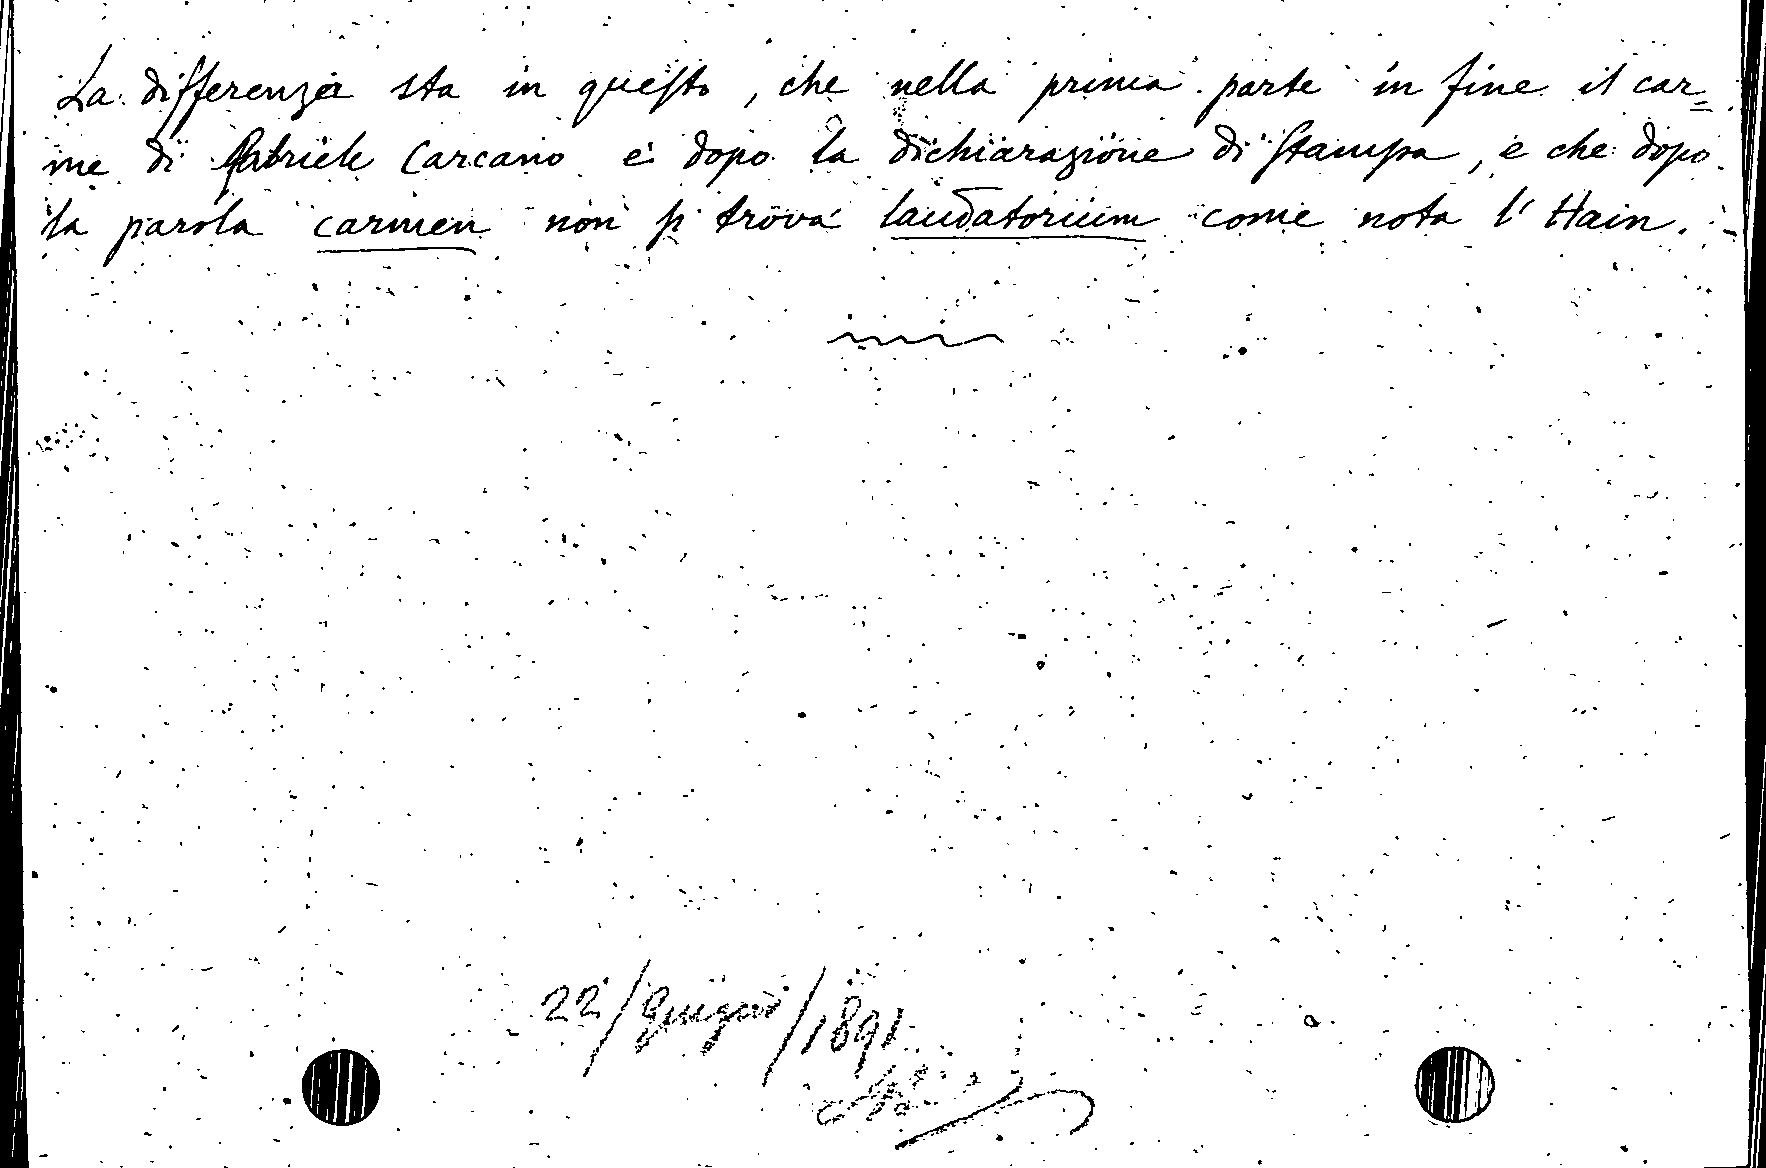 La differenza sta in questo, che nella prima parte in fine il car=
me di Gabriele Carcano è dopo la dichiarazione di stampa, e che dopo
la parola carmen non si trova laudatorium come nota l'Hain. -
22/Giugno/1891